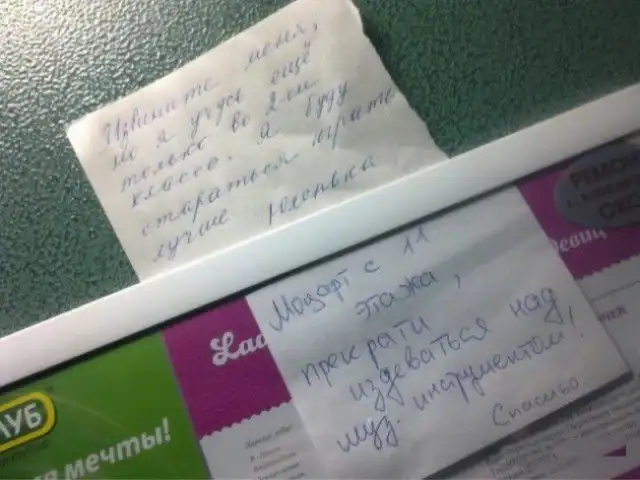 Извините меня,
но я учусь ещё
только во 2-ом
классе. Я буду
стараться играть
лучше Юленька
Моцарт с 11
этажа,
прекрати
издеваться над
муз. инструментом!
Спасибо
Lad
УБ
мечты!
РЕМО